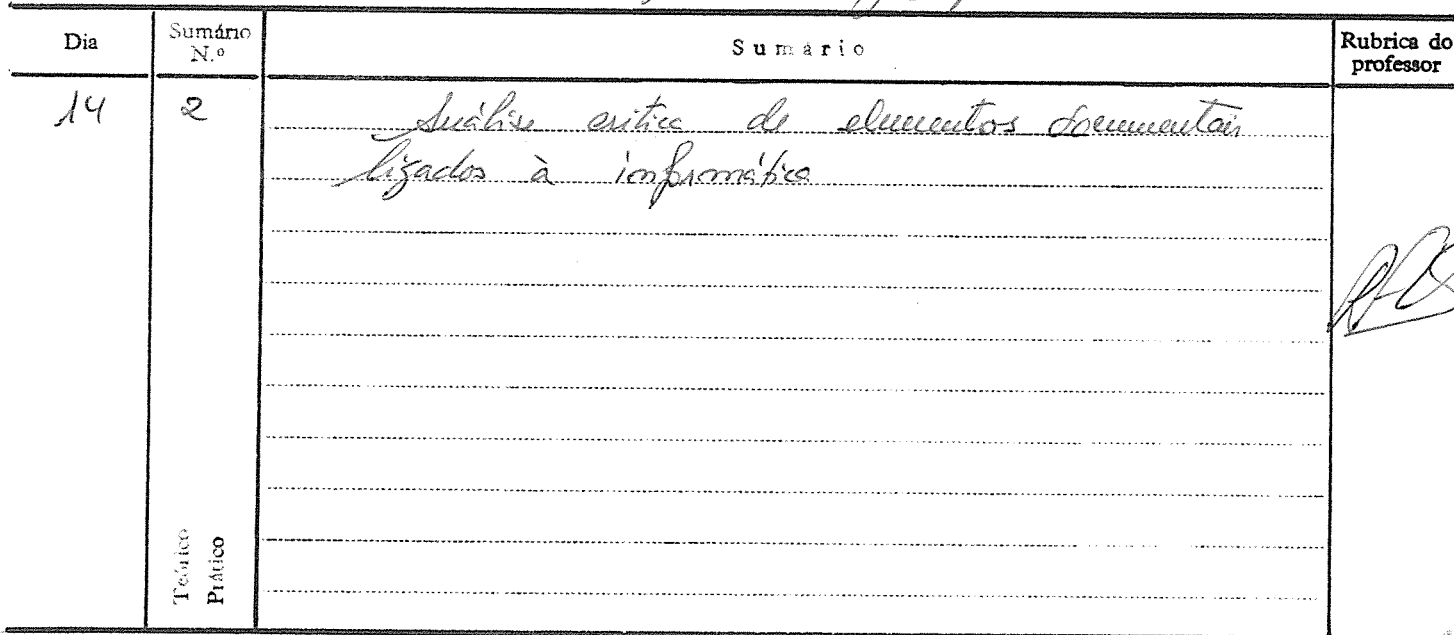 Dia
Sumário
N.º
Sumário
Rubrica do
professor
14
2
Análise crítica de elementos documentais
ligados à informática
Teórico
Prático